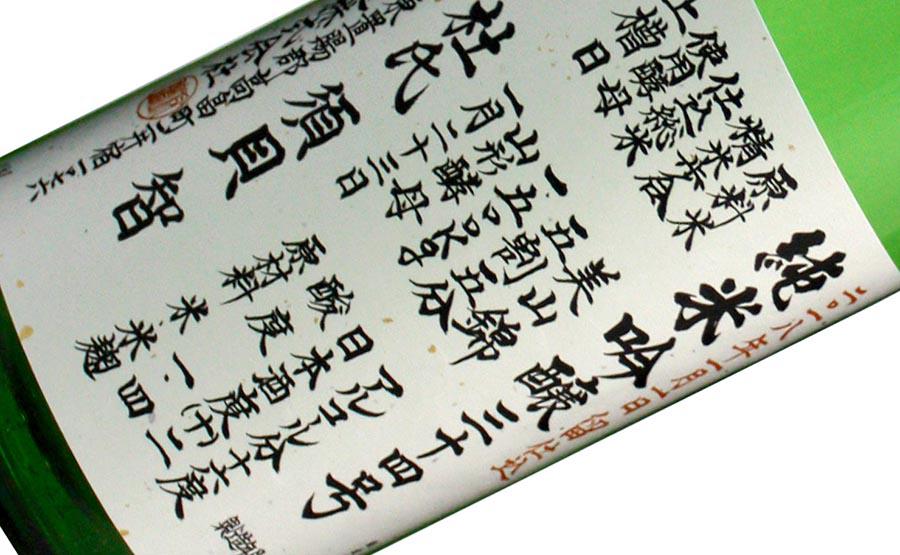 二〇一八年一月一日 留仕込
純米吟醸三十四号
原料米 美山錦
精米歩合 五割五分
仕込総米 一五〇〇kg
使用酵母 山形酵母
上槽日 一月二十三日
アルコール分十六度
日本酒度(+)二
酸度 一.四
原材料 米 米麹
杜氏 須貝智
東置賜郡高畠町二井宿一〇七六